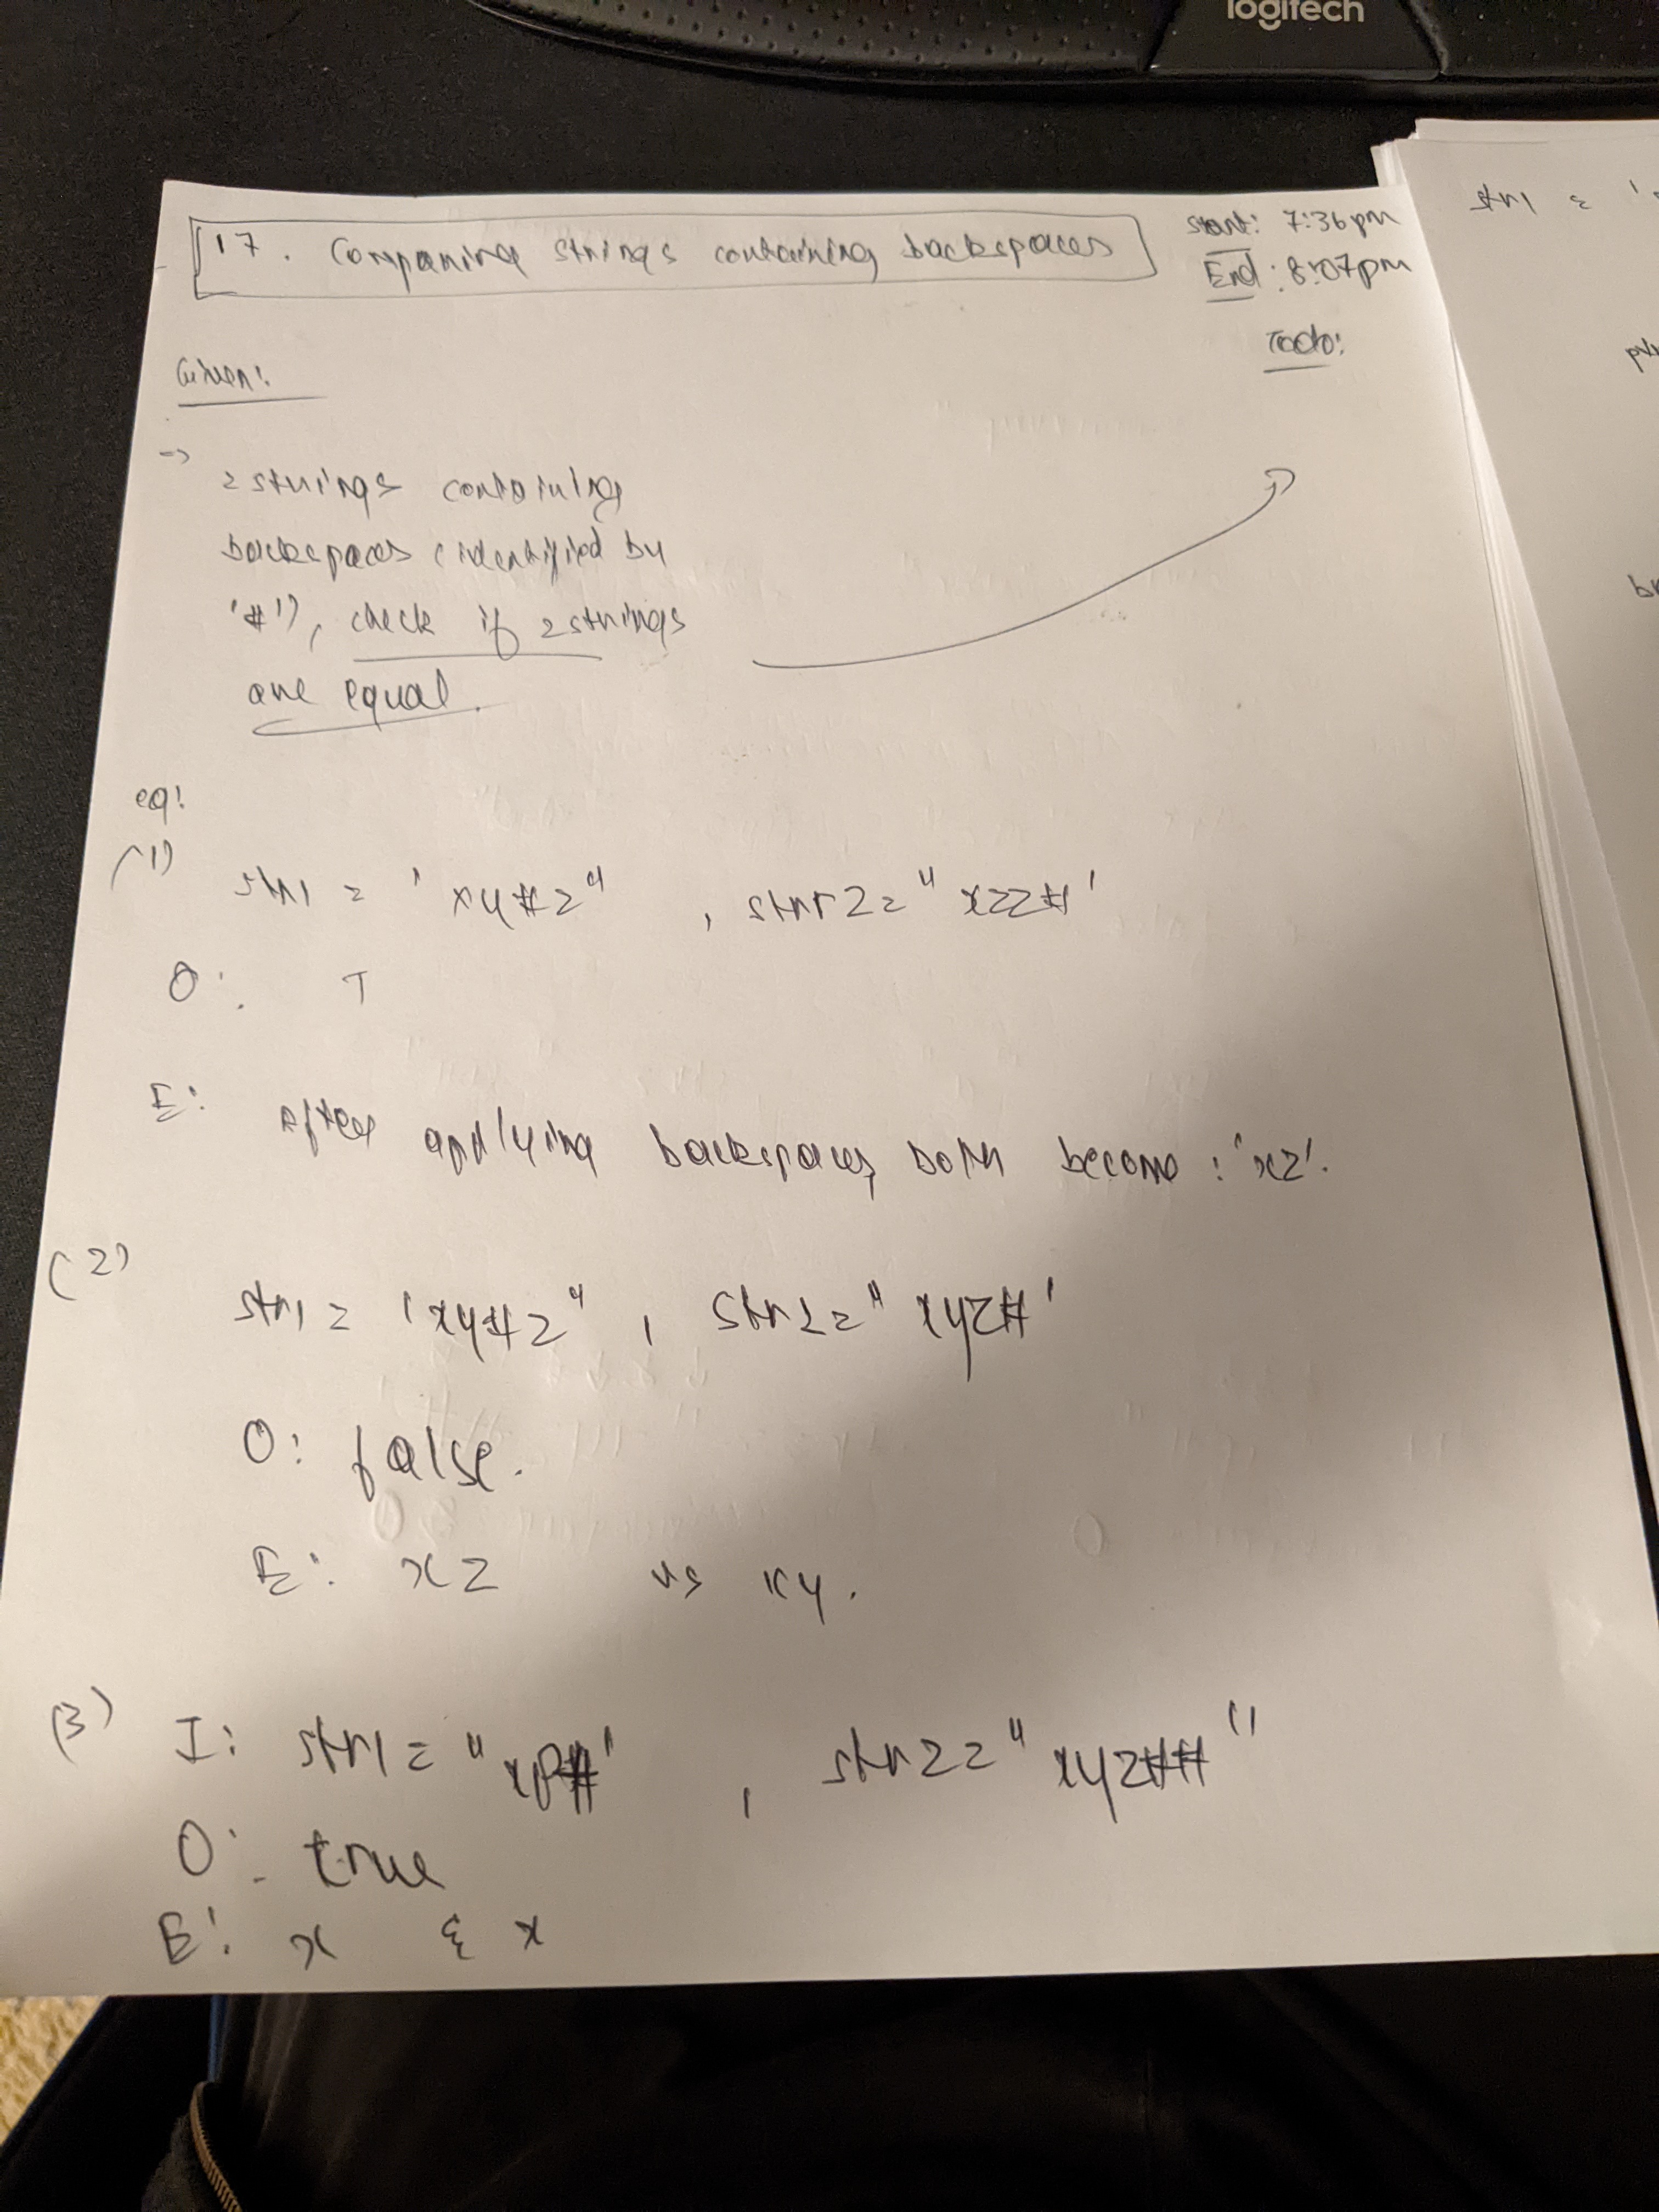 logitech
17. Comparing strings containing backspaces
Start: 7:36pm
End: 8:07pm
Todo:
Given:
->
2 strings containing
backspaces (identified by
'#'), check if 2 strings
are equal.
eg:
(1)
str1 = 'xy#z" , str2 = "xzz#'
O: T
E: After applying backspaces, both become : 'xz'.
(2)
str1 = 'xy#z" , str2 = "xyz#'
O: false.
E: xz vs xy.
(3) I: str1 = "xp#' , str2 = "xyz##"
O: true
E: x & x
str1 =